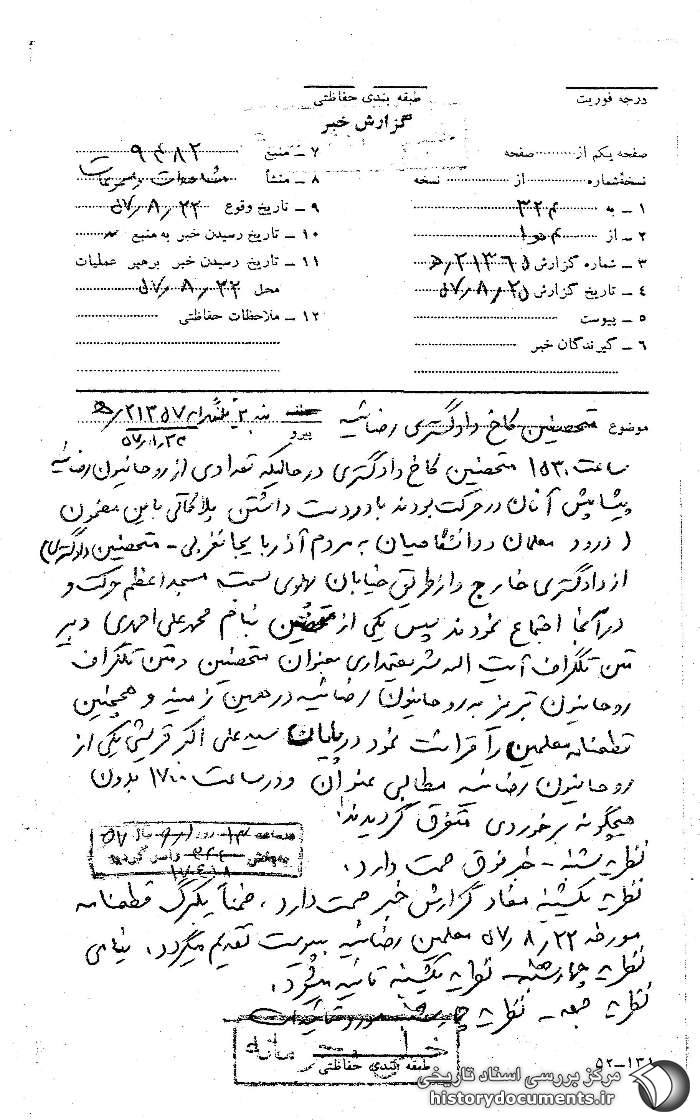 درجه فوریت
طبقه بندی حفاظتی
گزارش خبر
صفحه یکم از صفحه
نسخه شماره از نسخه
۱ - به ۳۲۴
۲ - از
۳ - شماره گزارش
۴ - تاریخ گزارش ۲۵ ر ۸ ر ۵۷
۵ - پیوست
۶ - گیرندگان خبر
۷ - منبع ۹۴۸۲
۸ - منشأ
۹ - تاریخ وقوع ۲۲ ر ۸ ر ۵۷
۱۰ - تاریخ رسیدن خبر به منبع
۱۱ - تاریخ رسیدن خبر برهبر عملیات
محل ۲۲ ر ۸ ر ۵۷
۱۲ - ملاحظات حفاظتی
موضوع متحصنین کاخ دادگستری رضائیه
پیرو
ساعت ۱۵۳۰ متحصنین کاخ دادگستری در حالیکه تعدادی از روحانیون رضائیه
پیشاپیش آنان در حرکت بودند با در دست داشتن پلاکاتی باین مضمون
( درود معلمان و دانشگاهیان به مردم آذربایجانغربی - متحصنین دادگستری)
از دادگستری خارج و از طریق خیابان پهلوی بسمت مسجد اعظم حرکت و
در آنجا اجتماع نمودند سپس یکی از متحصنین بنام محمد علی احمدی دبیر
متن تلگراف آیت اله شریعتمداری بعنوان متحصنین و متن تلگراف
روحانیون تبریز به روحانیون رضائیه در همین زمینه و همچنین
قطعنامه معلمین را قرائت نمود در پایان سید علی اکبر قریشی یکی از
روحانیون رضائیه مطالبی عنوان و در ساعت ۱۷۰۰ بدون
هیچگونه برخوردی متفرق گردیدند.
نظریه شنبه - خبر فوق صحت دارد.
نظریه یکشنبه مفاد گزارش خبر صحت دارد، ضمناً یکبرگ قطعنامه
مورخه ۲۲ ر ۸ ر ۵۷ معلمین رضائیه بپیوست تقدیم میگردد.
نظریه چهارشنبه - نظریه یکشنبه تائید میگردد.
نظریه جمعه - نظریه
طبقه بندی حفاظتی
۵۲-۱۳۱
مرکز بررسی اسناد تاریخی
historydocuments.ir